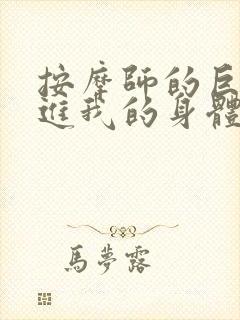 按摩師的巨
進我的身體
馬夢露